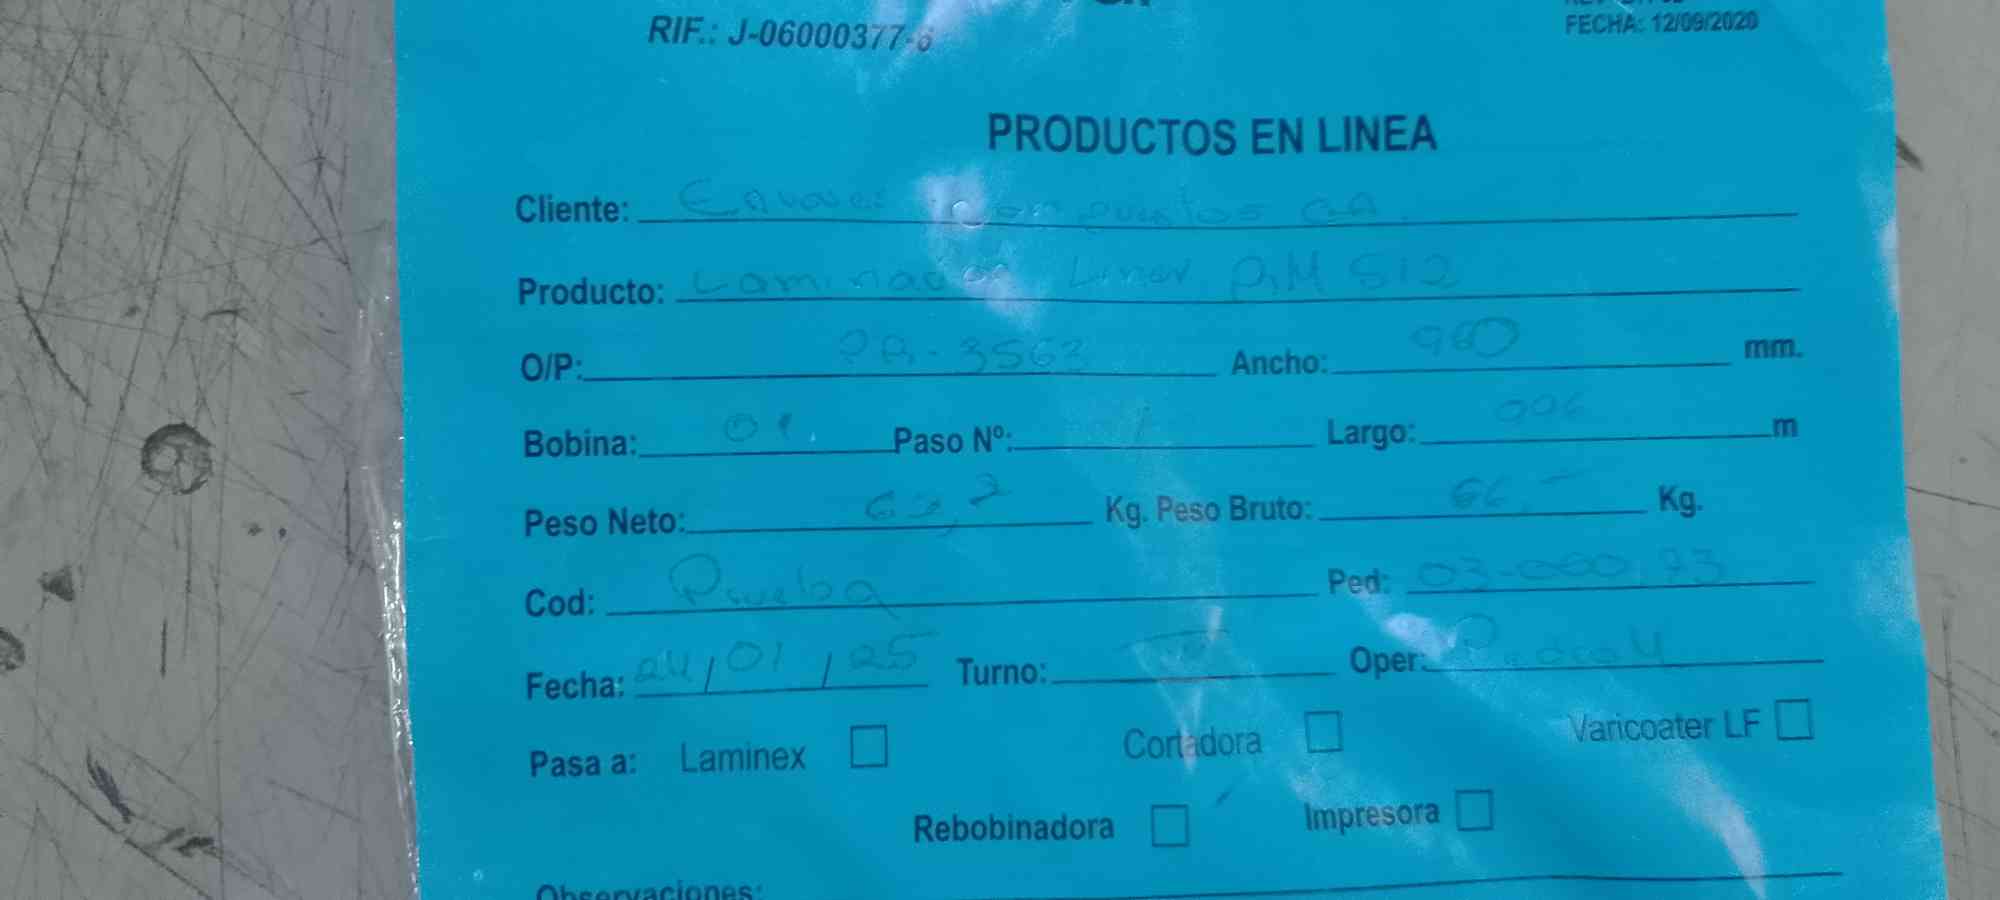 RIF.: J-06000377-6
FECHA: 12/09/2020
PRODUCTOS EN LINEA
Cliente: Envases Compuestos CA.
Producto: Laminador Liner
O/P: 3563 Ancho: 960 mm.
Bobina: 01 Paso Nº: 1 Largo: m
Peso Neto: Kg. Peso Bruto: 66,- Kg.
Cod: Prueba Ped:
Fecha: 24/01/25 Turno: Oper:
Pasa a: Laminex Cortadora Varicoater LF
Rebobinadora Impresora
Observaciones: